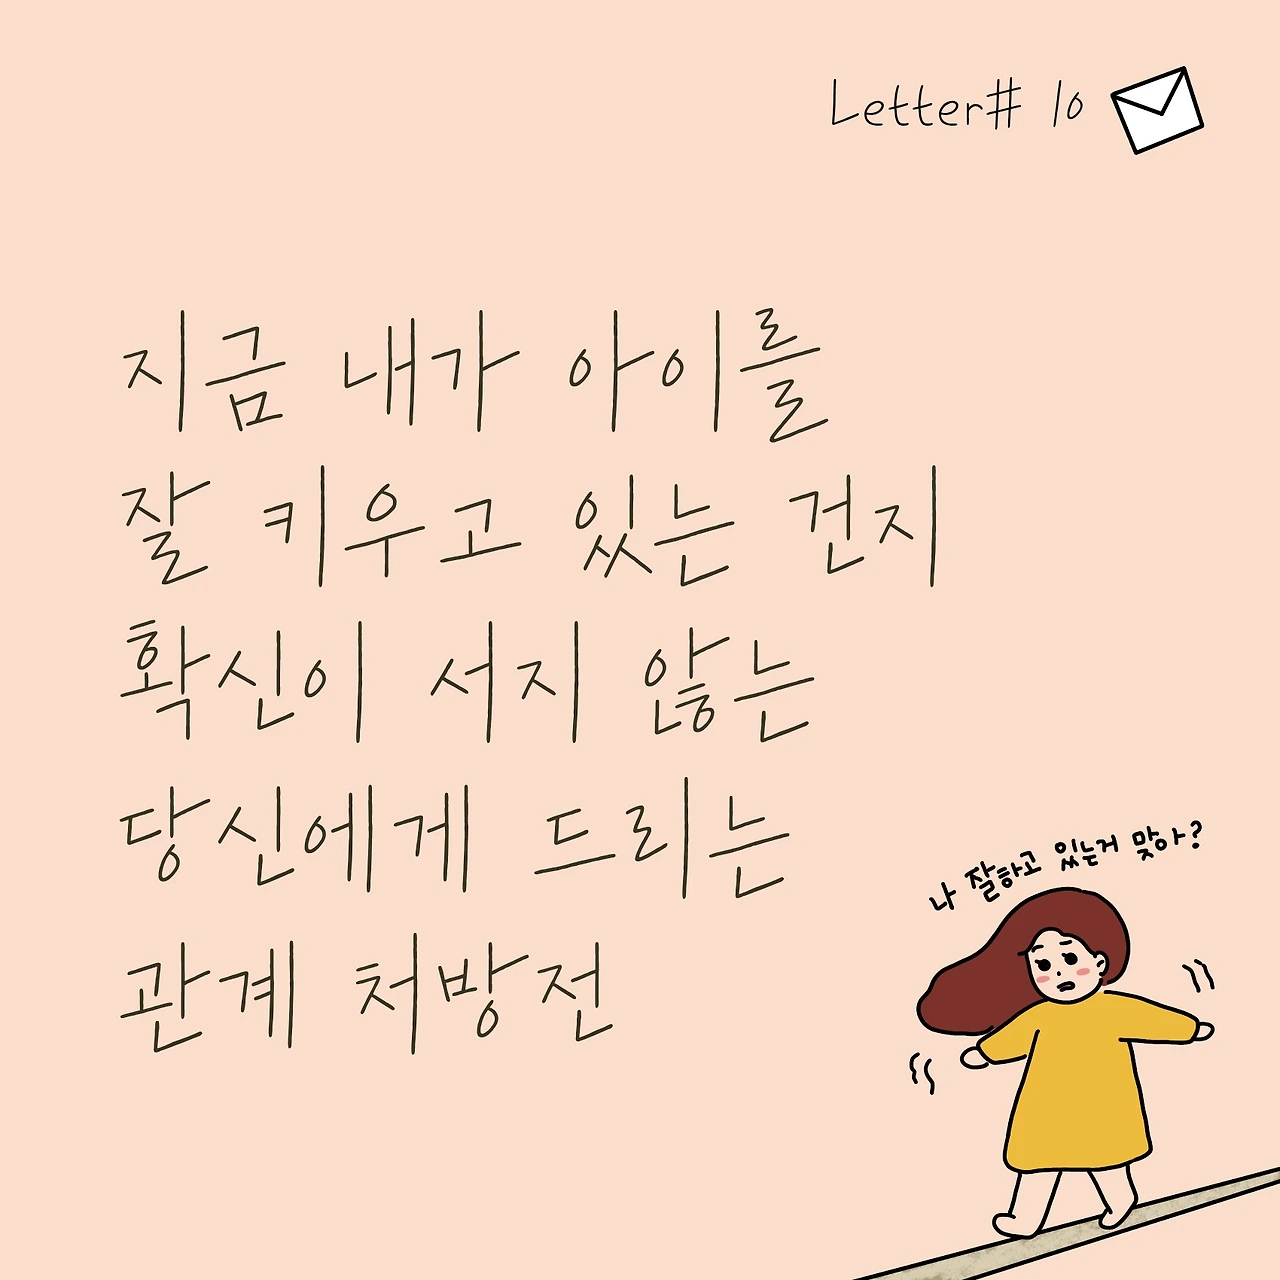 Letter# 10
지금 내가 아이를
잘 키우고 있는 건지
확신이 서지 않는
당신에게 드리는
관계 처방전
나 잘하고 있는거 맞아?